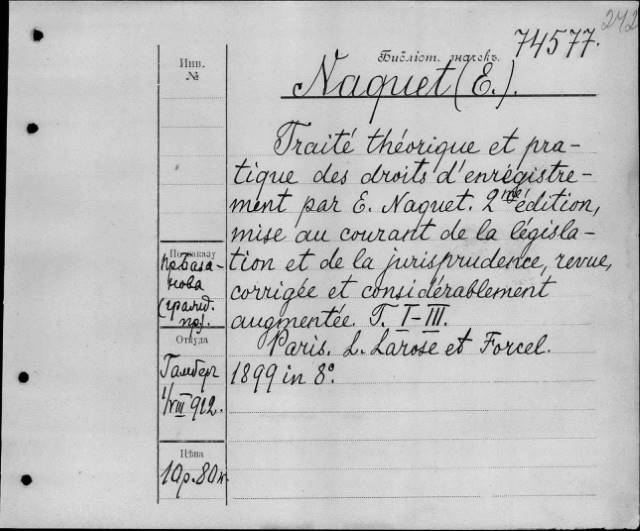 242
74577.
Библіот. значекъ.
Naquet (E.).
Traité théorique et pra-
tique des droits d'enregistre-
ment par E. Naquet. 2me édition,
mise au courant de la législa-
tion et de la jurisprudence, revue,
corrigée et considérablement
augmentée. T. I-III.
Paris. L. Larose et Forcel.
1899 in 8°.
Инв.
№
По заказу
пр. База-
нова
(гражд.
пр).
Откуда
Гамбер
1/VIII 912.
Цѣна
10 р. 80 к